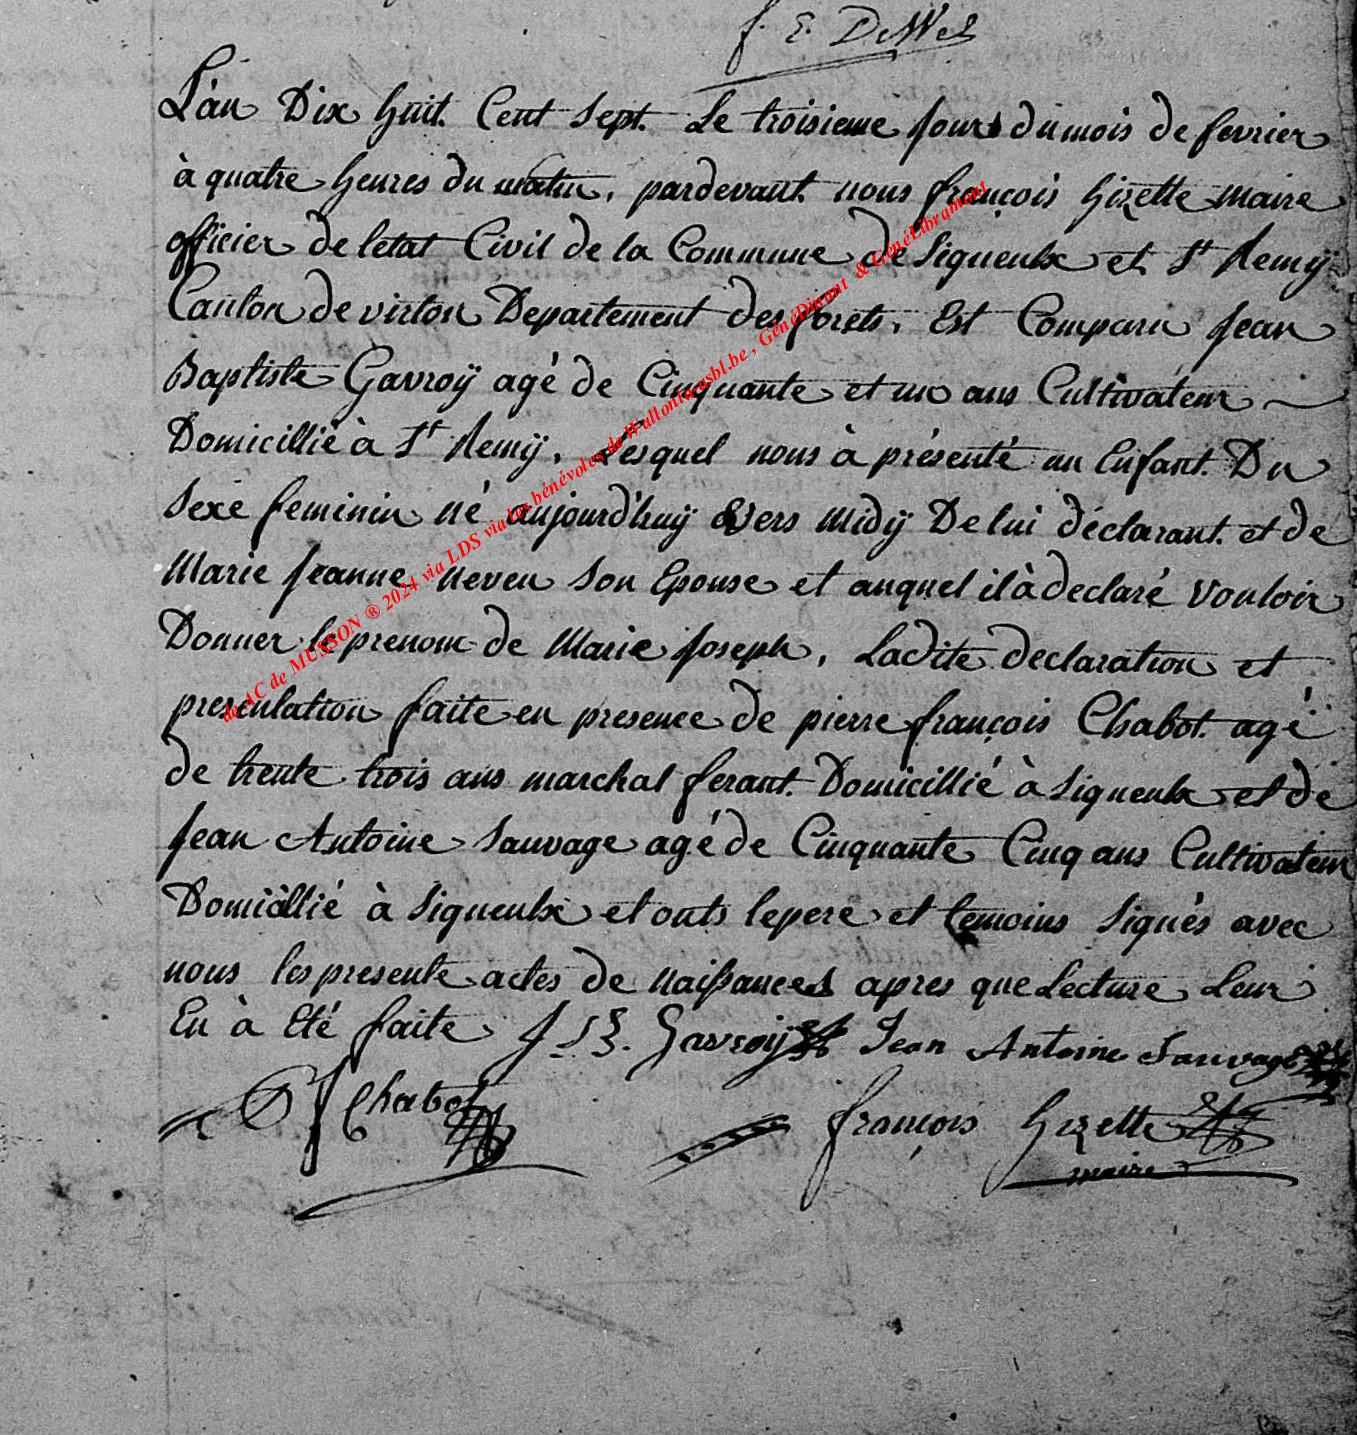 f. E. DeWez
L'an Dix huit Cent Sept. Le troisieme Jours du mois de fevrier
à quatre heures du matin, pardevant nous françois Gizette Maire
officier de letat Civil de la Commune de Signeulx et St Remÿ
Canton de virton Departement des forets, Est Comparu Jean
Baptiste Gavroÿ agé de Cinquante et un ans Cultivateur
Domicillié à St Remÿ, Lesquel nous à présenté un Enfant Du
Sexe feminin né aujourd'huÿ Vers Midÿ De lui déclarant et de
Marie Jeanne Neveu Son Epouse et auquel il à declaré Vouloir
Donner le prenom de Marie Joseph, Ladite declaration et
presentation faite en presence de pierre françois Chabot agé
de trente trois ans marchal ferant Domicillié à Signeulx et de
Jean Antoine Sauvage agé de Cinquante Cinq ans Cultivateur
Domicillié à Signeulx et onts le pere et temoins Signés avec
nous les presente actes de Naissances apres que Lecture Leur
En à Eté faite J. B. Gavroiÿ Jean Antoine Sauvage
P f Chabot françois Gizette
maire
de AC de MUSSON ® 2024 via LDS via les bénévoles de Wallonica asbl.be , GénéDinant & GénéLibramont